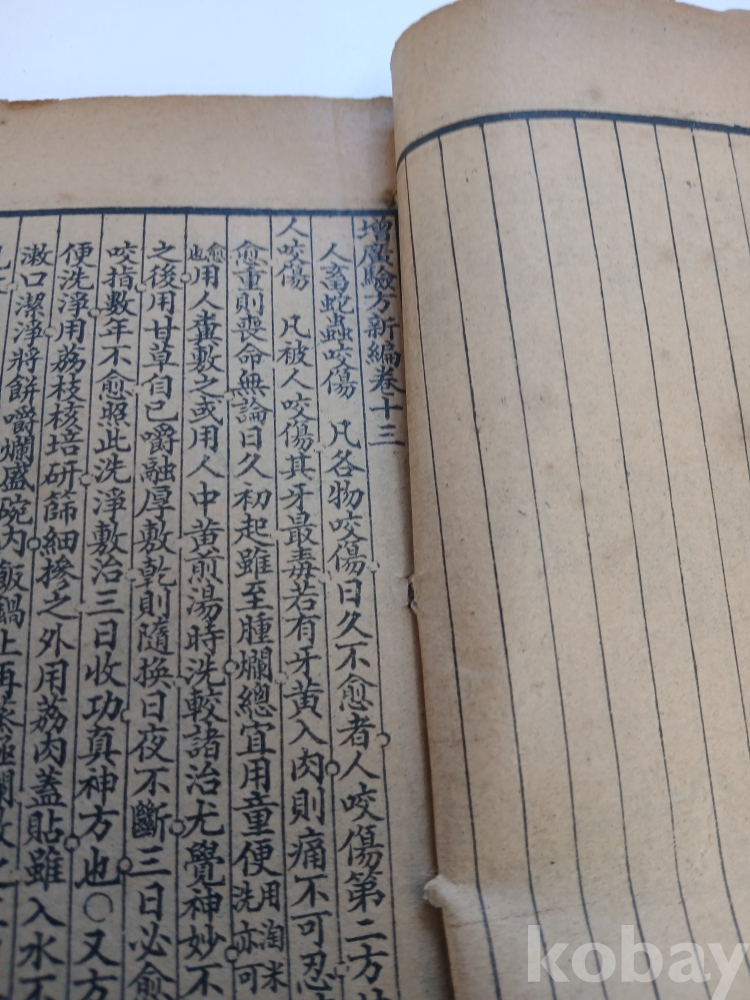 增廣驗方新編卷十三
人畜蛇蟲咬傷 凡各物咬傷日久不愈者人咬傷第二方
人咬傷 凡被人咬傷其牙最毒若有牙黃入肉則痛不可忍
愈重則喪命無論日久初起雖至腫爛總宜用童便洗用淘米亦可
愈也用人糞敷之或用人中黃煎湯時洗較諸治尤覺神妙不
之後用甘草自己嚼融厚敷乾則隨換日夜不斷三日必愈
咬指數年不愈照此洗淨敷治三日收功真神方也○又方
便洗淨用荔枝核焙研篩細摻之外用荔肉蓋貼雖入水不
漱口潔淨將餅嚼爛盛碗內飯鍋上再蒸極爛敷之
kobay